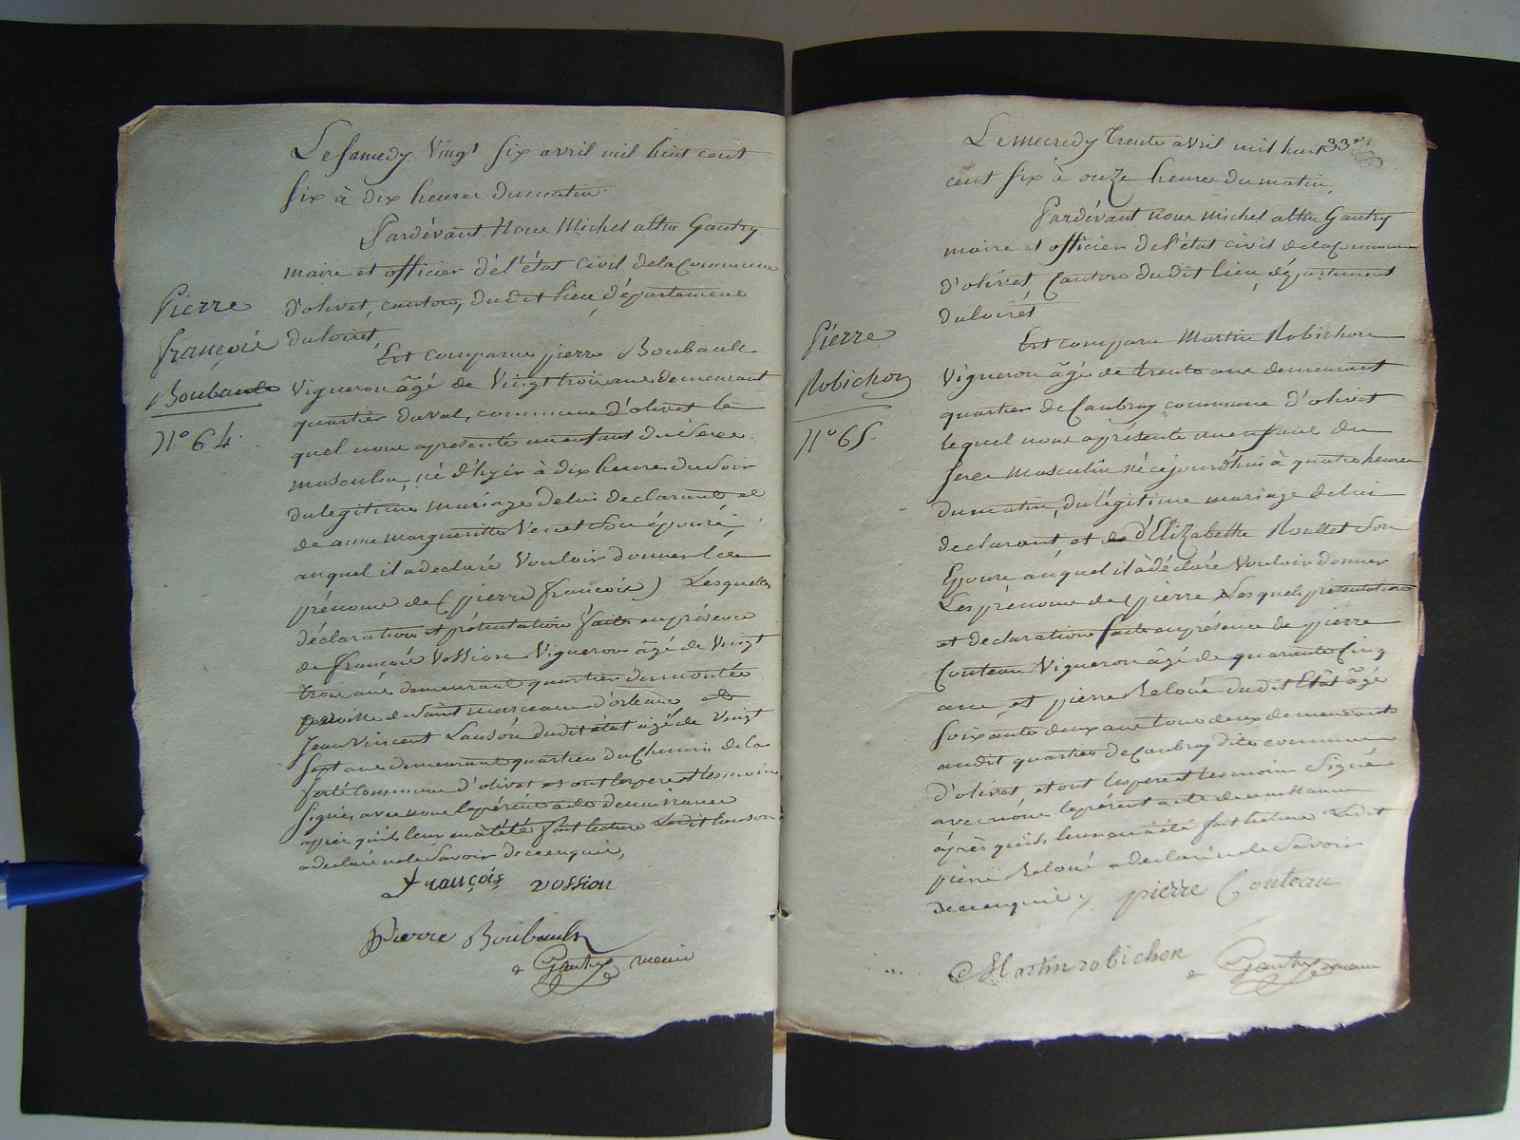 Le samedy Vingt six avril mil huit cent
six à dix heures du matin
Pardevant Nous Michel Gautry
maire et officier de l'état civil de la Commune
d'olivet, canton, du dit lieu, département
du loiret,
Pierre
françois
Boubault
N° 64.
Est comparu pierre Boubault
Vigneron âgé de Vingt trois ans demeurant
quartier du val, commune d'olivet le
quel nous a présenté un enfant du sexe
masculin, né d'hyer à dix heures du soir
du legitime mariage de lui declarant et
de anne margueritte Son épouse,
auquel il a declaré Vouloir donner les
prénoms de (pierre françois) Lesquelles
déclaration et présentation faite en présence
de françois Vossion Vigneron âgé de Vingt
trois ans demeurant quartier du montée
paroisse de Saint marceau d'orleans et
Jean Vincent dudit état âgé de Vingt
sept ans demeurant quartier du Chemin de la
ferté Commune d'olivet et ont les pere et temoins
signés avec nous le présent acte de naissance
après qu'il leur en à été fait lecture Ledit
a declaré ne le Savoir de ce enquis,
François vossion
Pierre Boubault
Gautry maire
33
Le mecredy trente avril mil huit
cent six à onze heures du matin,
Pardevant nous michel Gautry
maire et officier de l'état civil de la Commune
d'olivet, Canton du dit lieu, département
du loiret
Pierre
Robichon
N° 65.
Est comparu Martin Robichon
Vigneron âgé de trente ans demeurant
quartier de Caubray commune d'olivet
lequel nous a présenté un enfant du
sexe masculin né cejourd'hui à quatre heures
du matin, du légitime mariage de lui
declarant, et de d'Elizabethe Roullet Son
Epouse auquel il à déclaré Vouloir donner
Les prénoms de (pierre Les quels présentation
et declaration faite en présence de pierre
Couteau Vigneron âgé de quarante Cinq
ans, et pierre dudit Etat âgé
soixante deux ans tous deux demeurants
audit quartier de Caubray dite commune
d'olivet, et ont les pere et temoins Signés
avec nous le présent acte de naissance
après qu'il leur en à été fait lecture Ledit
pierre a declaré ne le Savoir
de ce enquis, pierre Couteau
Martin robichon
Gautry maire